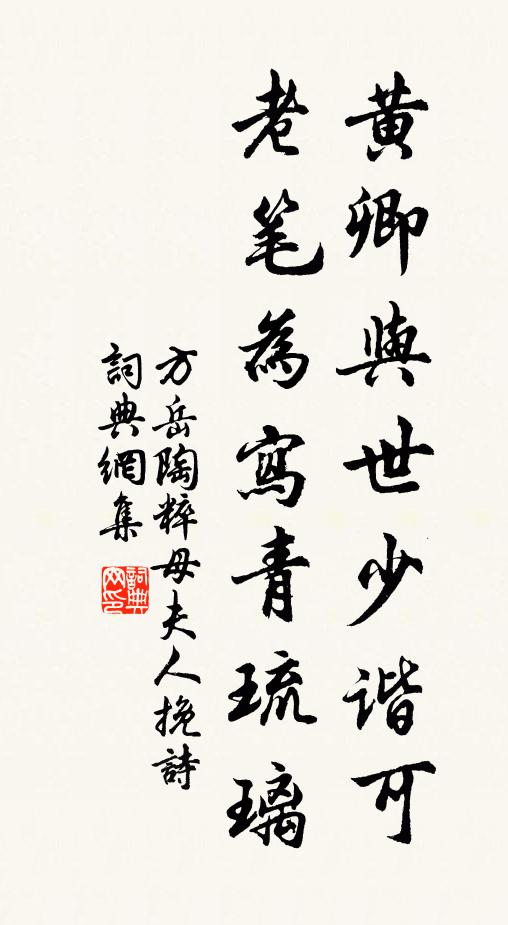 黄卿與世少谐可
老笔為寫青琉璃
方岳陶粹母夫人挽詩
詞典網集
詞典
网印